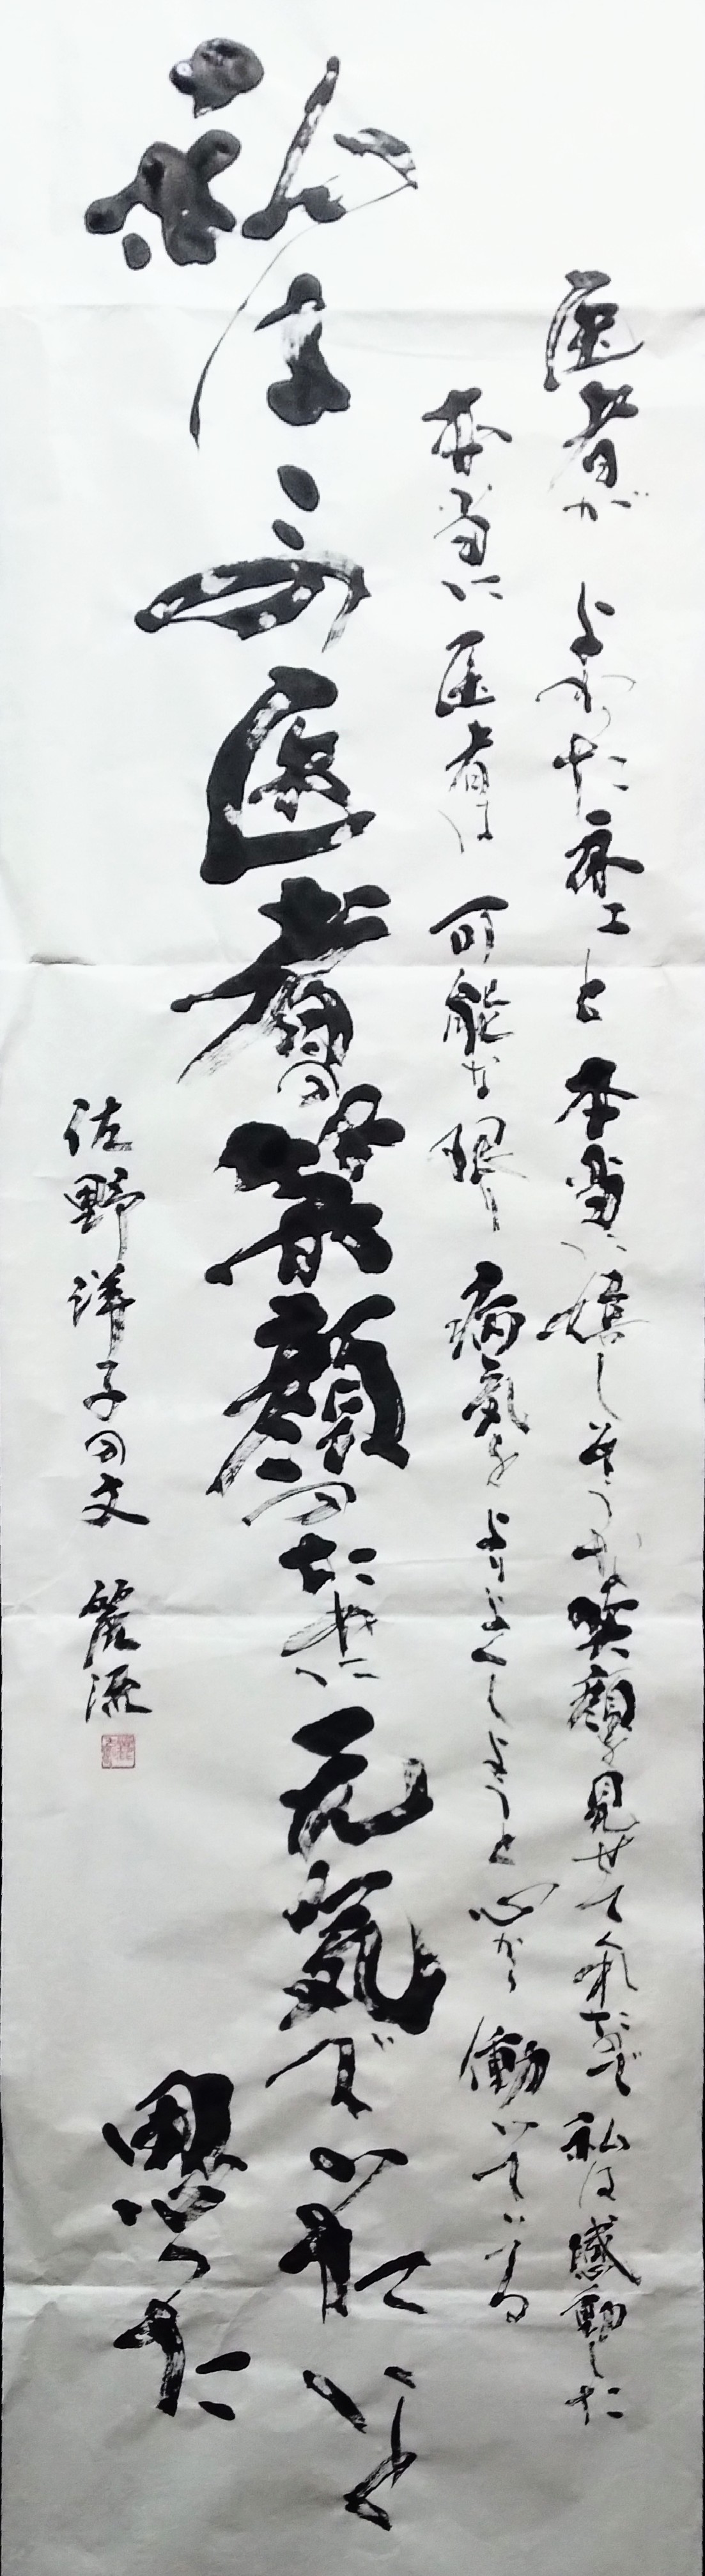 医者が よかった ネェと 本当に嬉しそうな笑顔を見せてくれたので 私は感動した
本当に 医者は 可能な限り 病気を よりよくしようと 心から 働いている
私は 医者の笑顔のために元気でいたいと
思った
佐野洋子の文 麗流